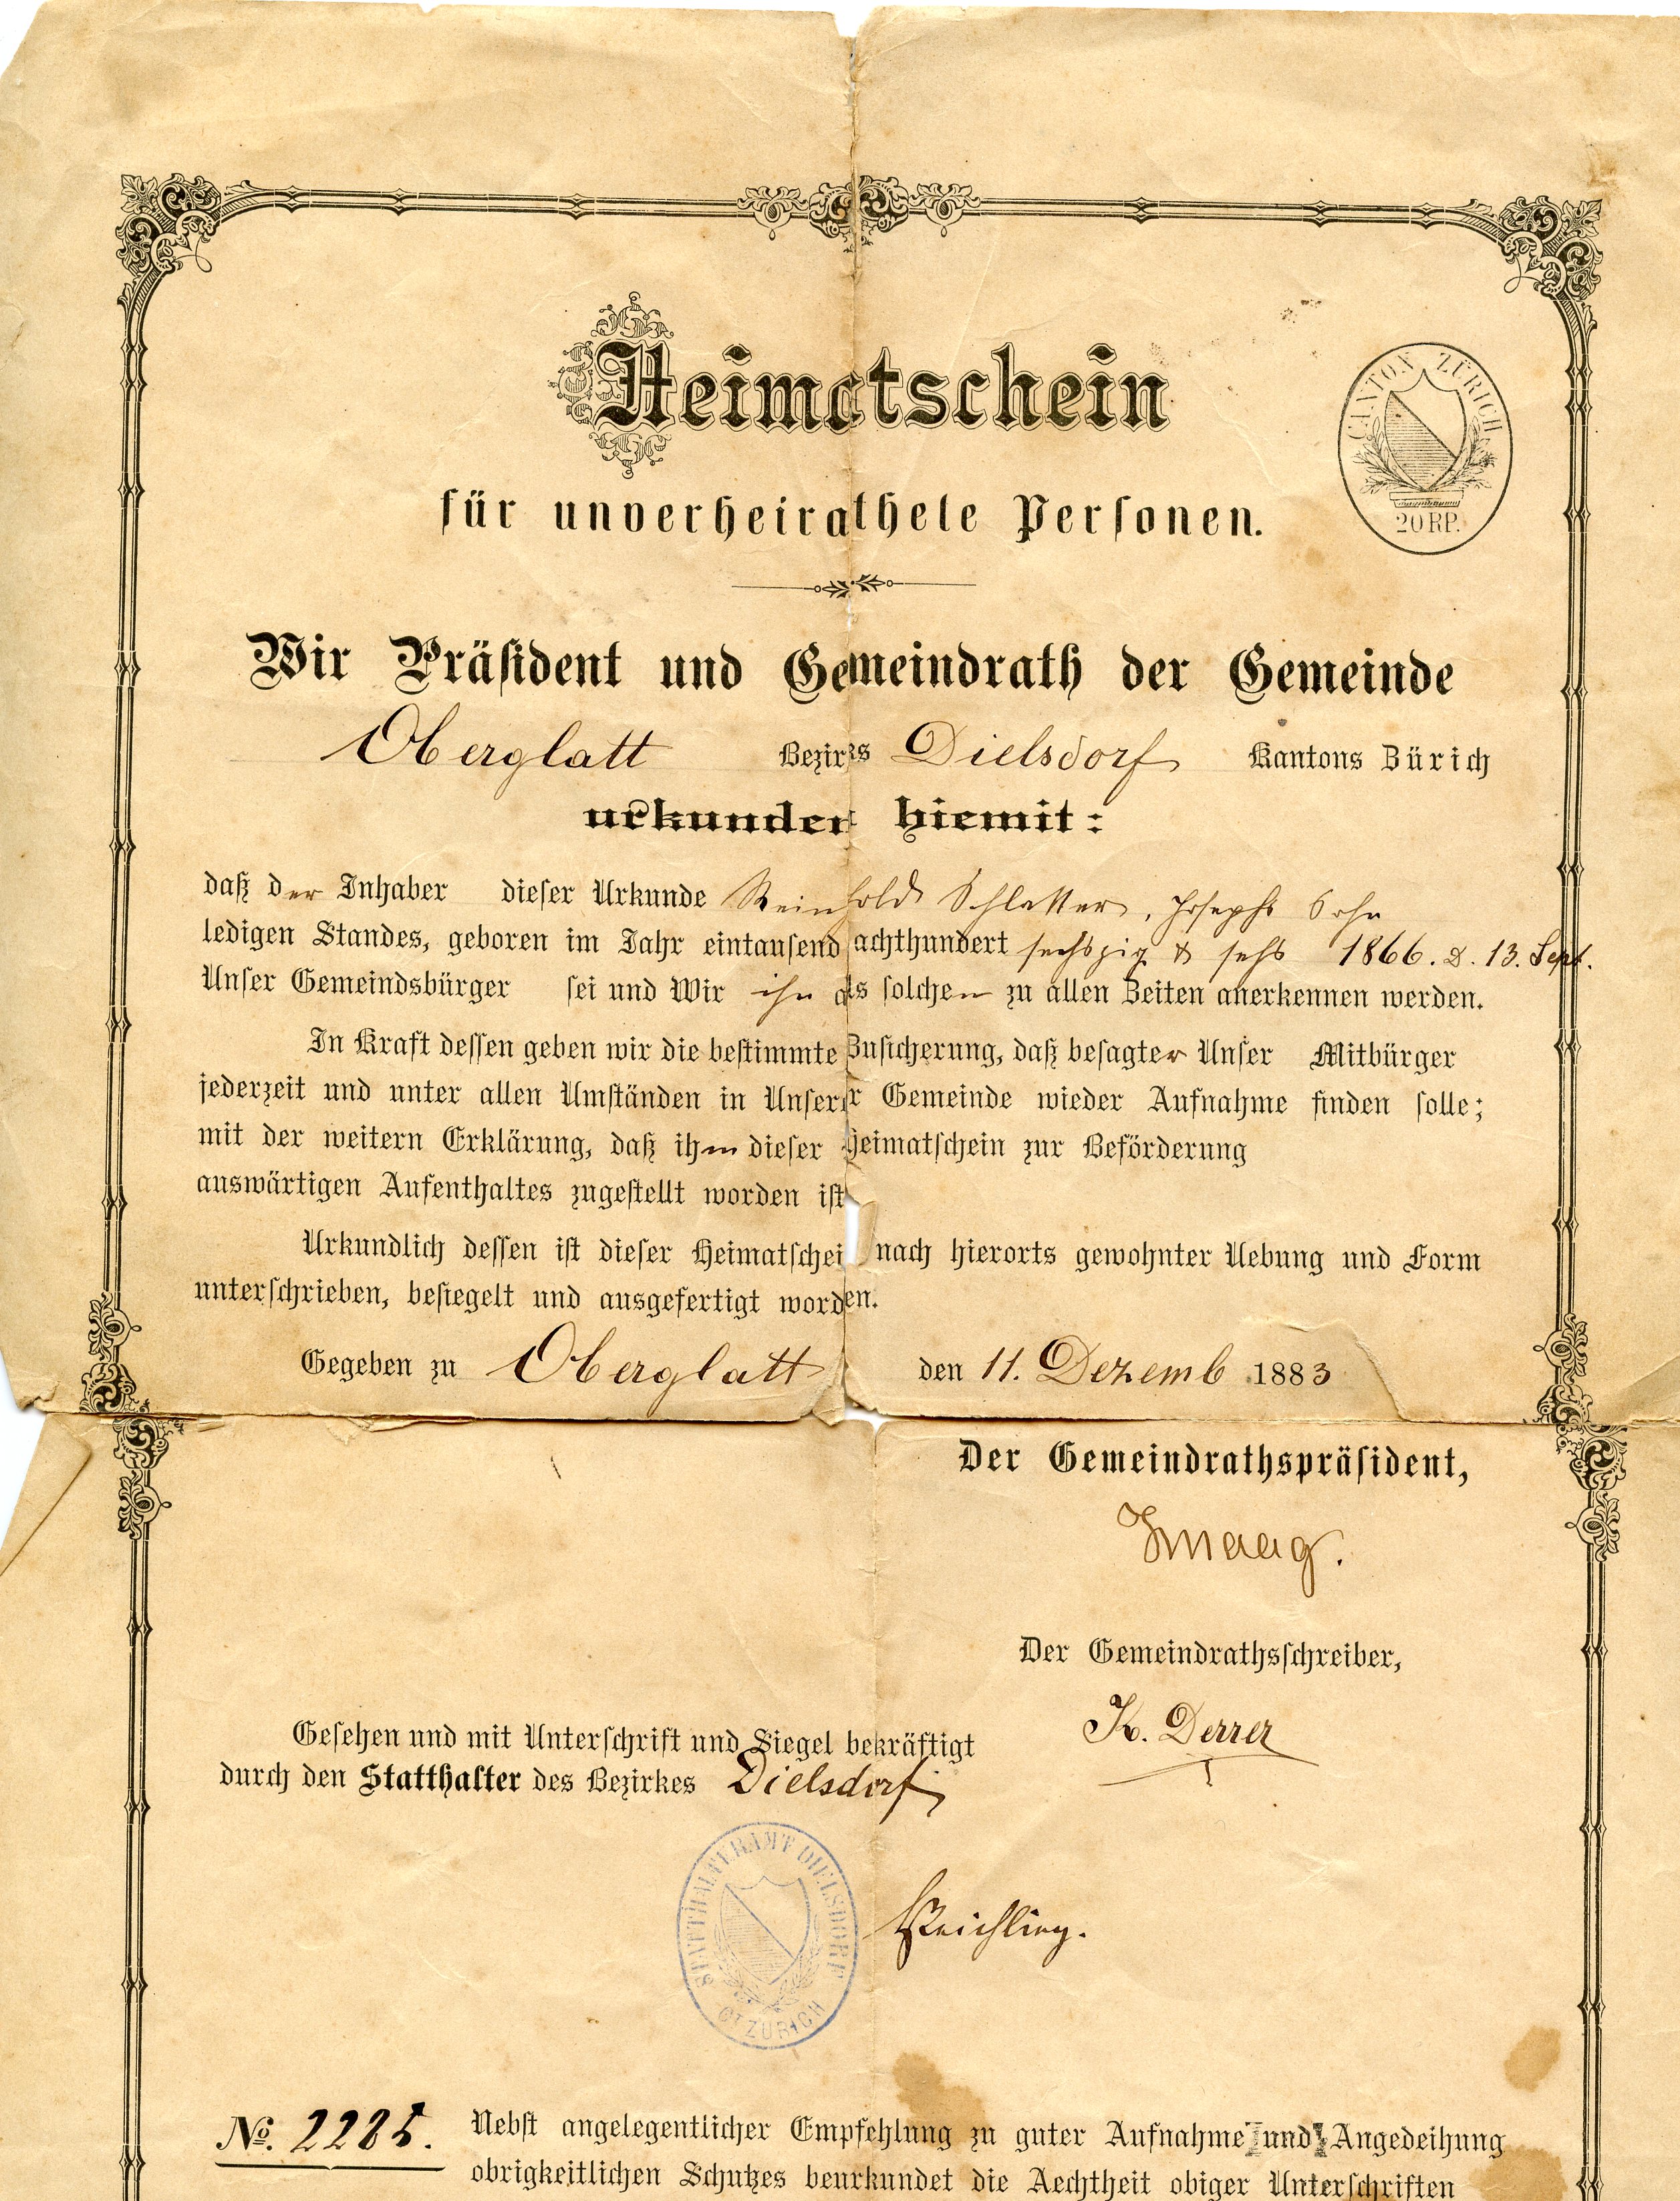 Heimatschein
CANTON ZÜRICH
20 RP.
für unverheirathete Personen.
Wir Präsident und Gemeindrath der Gemeinde
Oberglatt Bezirks Dielsdorf Kantons Zürich
urkunden hiemit:
daß der Inhaber dieser Urkunde Reinhold Schlatter, Josephs Sohn
ledigen Standes, geboren im Jahr eintausend achthundert sechszig & sechs 1866. d. 13. Sept.
Unser Gemeindsbürger sei und Wir ihn als solchen zu allen Zeiten anerkennen werden.
In Kraft dessen geben wir die bestimmte Zusicherung, daß besagter Unser Mitbürger
jederzeit und unter allen Umständen in Unserer Gemeinde wieder Aufnahme finden solle;
mit der weitern Erklärung, daß ihm dieser Heimatschein zur Beförderung
auswärtigen Aufenthaltes zugestellt worden ist
Urkundlich dessen ist dieser Heimatschei nach hierorts gewohnter Uebung und Form
unterschrieben, besiegelt und ausgefertigt worden.
Gegeben zu Oberglatt den 11. Dezemb 1883
Der Gemeindrathspräsident,
Maag.
Der Gemeindrathsschreiber,
K. Derrer
Gesehen und mit Unterschrift und Siegel bekräftigt
durch den Statthalter des Bezirkes Dielsdorf
STATTHALTERAMT DIELSDORF
CT ZÜRICH
No. 2285. Nebst angelegentlicher Empfehlung zu guter Aufnahme und Angedeihung
obrigkeitlichen Schutzes beurkundet die Aechtheit obiger Unterschriften